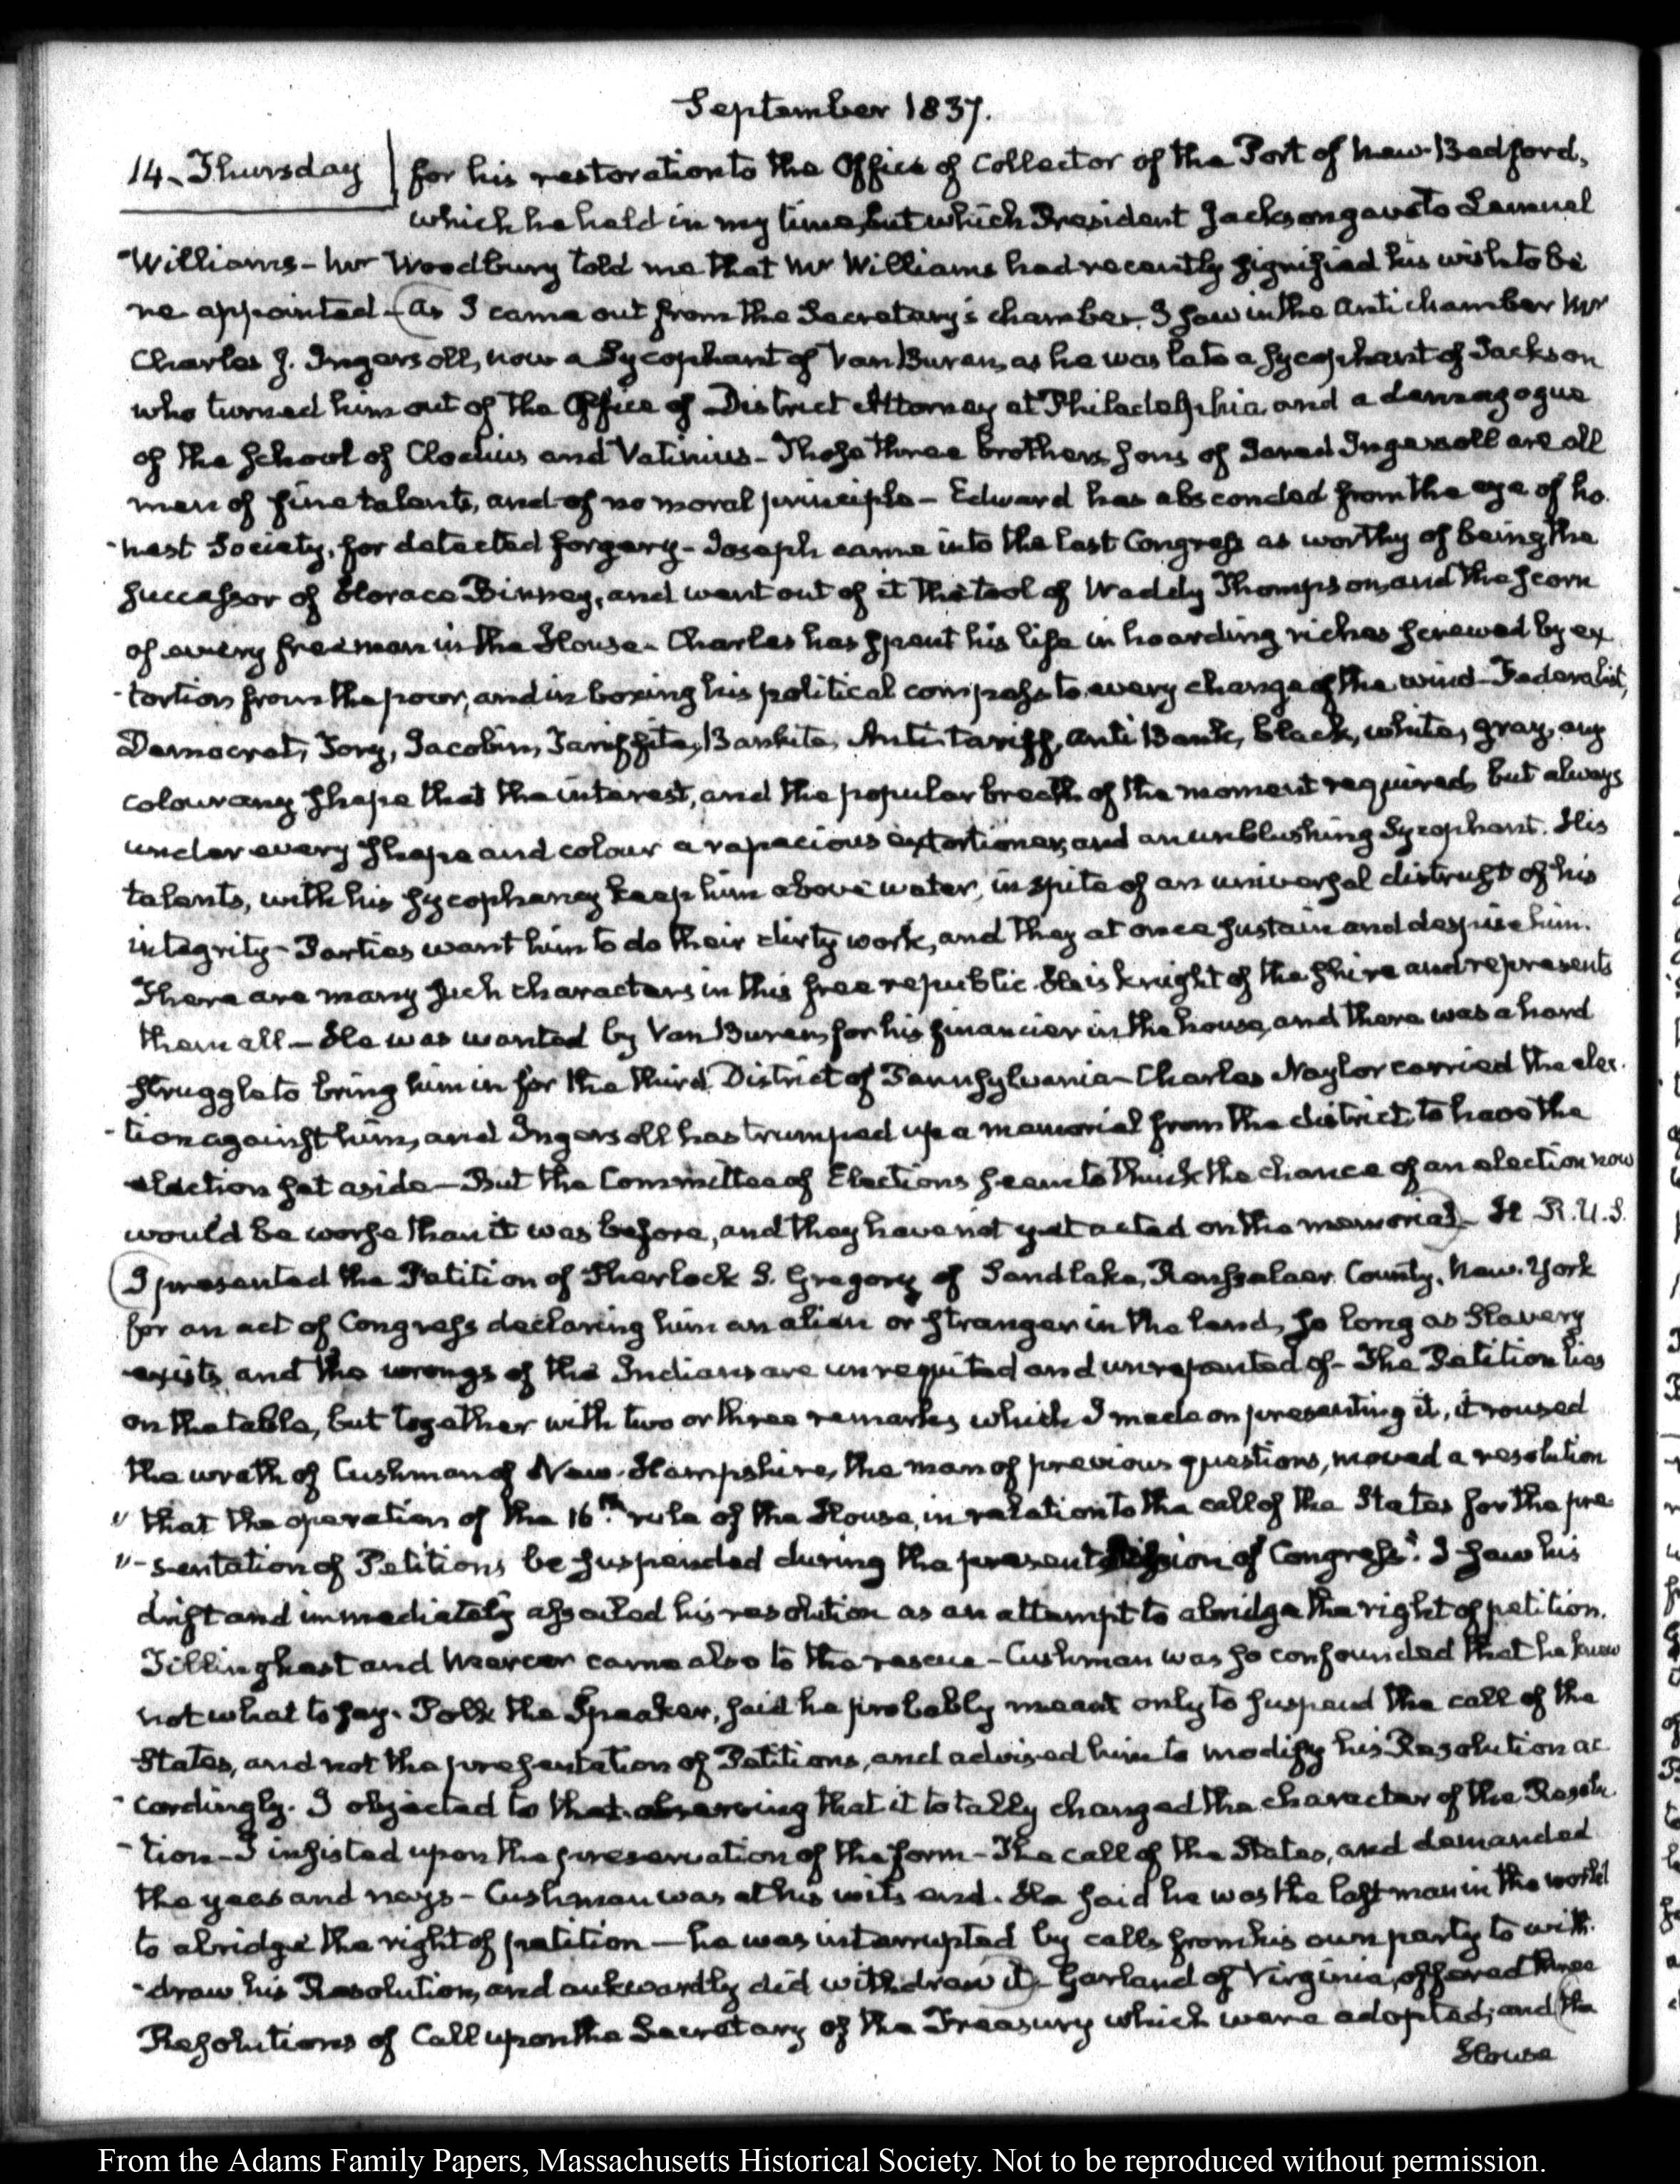 September 1837.
14. Thursday
for his restoration to the Office of Collector of the Port of New-Bedford,
which he held in my time, but which President Jackson gave to Lemuel
Williams - Mr Woodbury told me that Mr Williams had recently signified his wish to be
re appointed - (as I came out from the Secretary's chamber, I saw in the Anti chamber Mr
Charles J. Ingersoll, now a Sycophant of Van Buren, as he was late a sycophant of Jackson
who turned him out of the Office of District Attorney at Philadelphia, and a demagogue
of the school of Clodius and Vatinius - Those three brothers, sons of Jared Ingersoll are all
men of fine talents, and of no moral principle - Edward has absconded from the eye of ho-
-nest Society, for detected forgery - Joseph came into the last Congress as worthy of being the
successor of Horace Binney, and went out of it the tool of Waddy Thompson, and the scorn
of every freeman in the House - Charles has spent his life in hoarding riches screwed by ex
-tortion from the poor, and in boxing his political compass to every change of the wind - Federalist,
Democrat, Tory, Jacobin, Tariffite, Bankite, Anti-tariff, anti Bank, black, white, gray, any
colour any shape that the interest, and the popular breath of the moment required, but always
under every shape and colour a rapacious extortioner, and an unblushing Sycophant. His
talents, with his sycophancy keep him above water, in spite of an universal distrust of his
integrity - Parties want him to do their dirty work, and they at once sustain and despise him.
There are many such characters in this free republic. He is knight of the shire and represents
them all - He was wanted by Van Buren, for his financier in the house, and there was a hard
struggle to bring him in for the third District of Pennsylvania - Charles Naylor carried the elec-
-tion against him, and Ingersoll has trumped up a memorial from the district, to have the
election set aside - But the Committee of Elections seem to think the chance of an election now
would be worse than it was before, and they have not yet acted on the memorial) - H. R. U. S.
(I presented the Petition of Sherlock S. Gregory of Sandlake, Rensselaer County, New-York
for an act of Congress declaring him an alien or stranger in the land, so long as Slavery
exists, and the wrongs of the Indians are unrequited and unrepented of - The Petition lies
on the table, but together with two or three remarks which I made on presenting it, it roused
the wrath of Cushman of New-Hampshire, the man of previous questions, moved a resolution
" that the operation of the 16th. rule of the House, in relation to the call of the States for the pre-
"-sentation of Petitions be suspended during the present Session of Congress". I saw his
drift and immediately assailed his resolution as an attempt to abridge the right of petition.
Tillinghast and Mercer came also to the rescue - Cushman was so confounded that he knew
not what to say. Polk the Speaker, said he probably meant only to suspend the call of the
States, and not the presentation of Petitions, and advised him to modify his Resolution ac
-cordingly. I objected to that observing that it totally changed the character of the Resolu-
-tion - I insisted upon the preservation of the form - The call of the States, and demanded
the yeas and nays - Cushman was at his wits end. He said he was the last man in the world
to abridge the right of petition - he was interrupted by calls from his own party to with-
-draw his Resolution, and awkwardly did withdraw it) - Garland of Virginia, offered three
Resolutions of Call upon the Secretary of the Treasury which were adopted; and (the
House
From the Adams Family Papers, Massachusetts Historical Society. Not to be reproduced without permission.